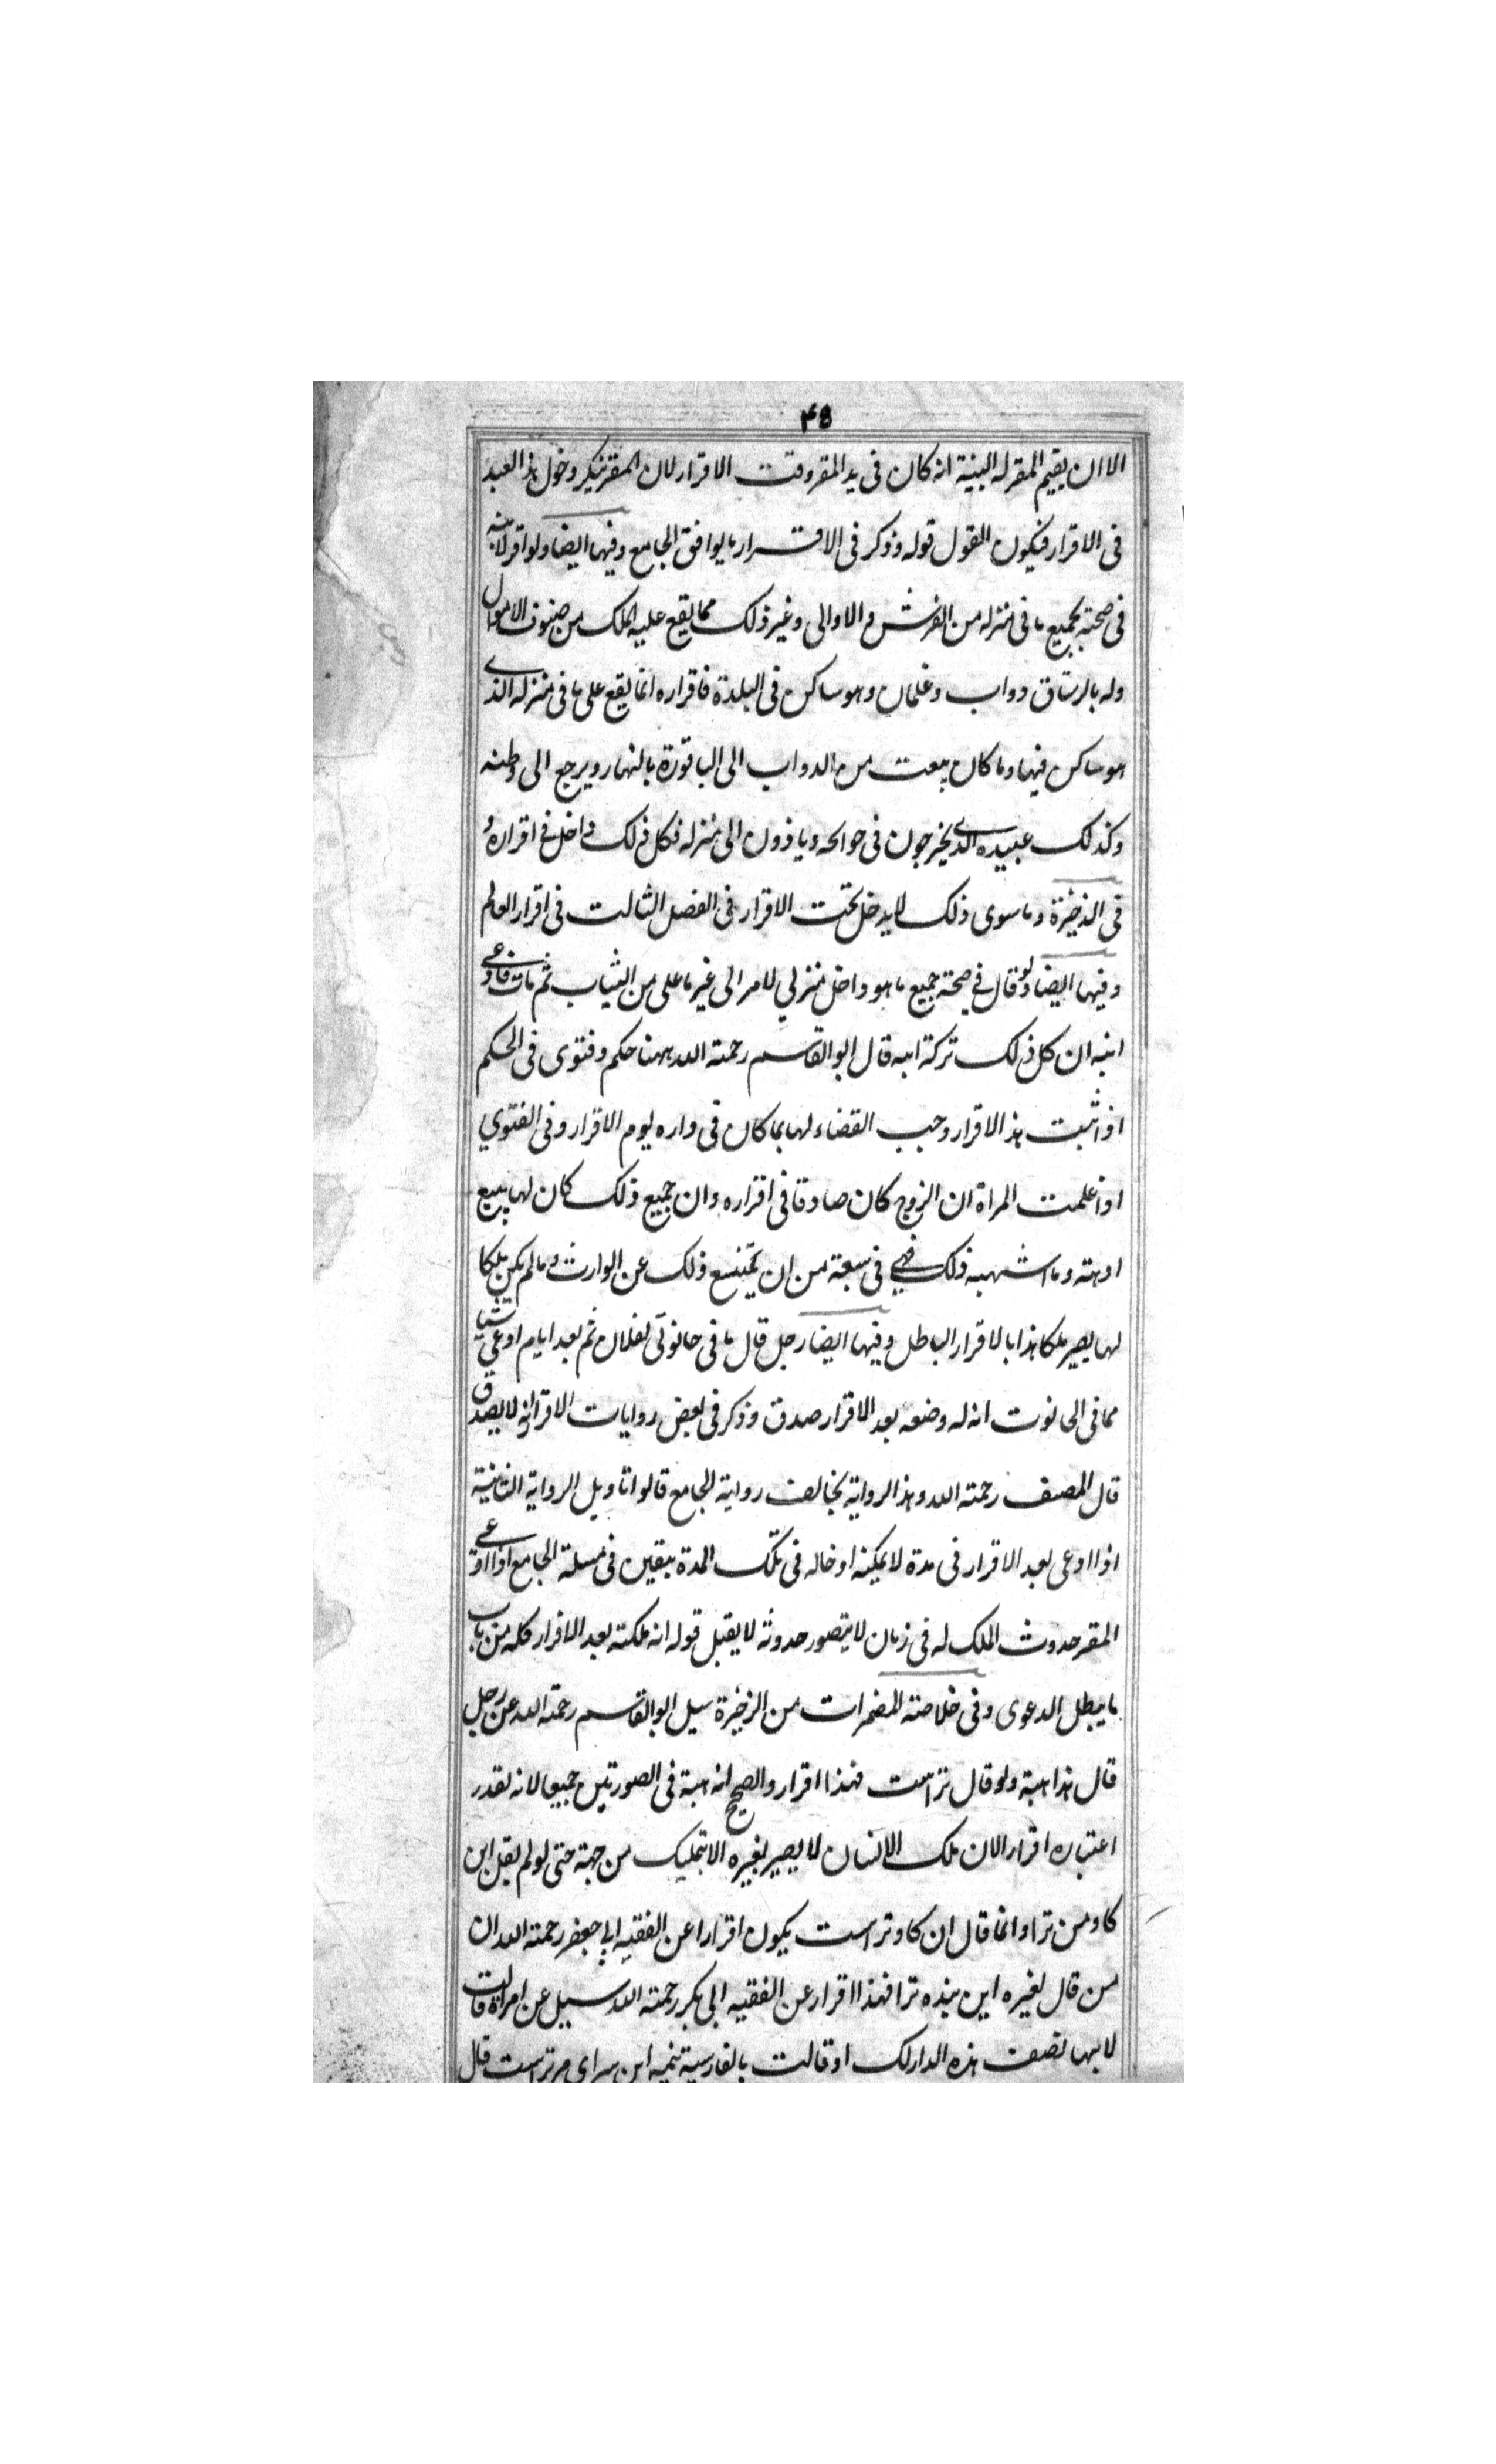 ۴۵
الا ان يقيم المقر له البينة انه كان فى يد المقر وقت الاقرار لان المقر ينكر دخول هذا العبد
فى الاقرار فيكون القول قوله وذكر فى الاقرار ما يوافق الجامع وفيها ايضا ولو اقر لابنه
فى صحته بجميع ما فى منزله من الفرش والاوالى وغير ذلك مما يقع عليه الملك من صنوف الاموال
وله بالرستاق دواب وغلمان وهو ساكن فى البلدة فاقراره انما يقع على ما فى منزله الذى
هو ساكن فيها وما كان يبعث من الدواب الى الباقورة بالنهار ويرجع الى وطنه
وكذلك عبيده الذى يخرجون فى حوائجه وياذون الى منزله فكل ذلك داخل فى اقراره و
فى الذخيرة وما سوى ذلك لا يدخل تحت الاقرار فى الفصل الثالث فى اقرار العالم
وفيها ايضا لو قال فى صحته جميع ما هو داخل منزلي لامراتى غير ما على من الثياب ثم مات فادعى
ابنه ان كل ذلك تركة ابيه قال ابو القاسم رحمته الله ههنا حكم وفتوى فى الحكم
اذا ثبت هذا الاقرار وجب القضاء لها بما كان فى داره يوم الاقرار وفى الفتوي
اذا علمت المراة ان الزوج كان صادقا فى اقراره وان جميع ذلك كان لها ببيع
او هبته وما اشبهه ذلك فهي فى سعة من ان يمتنع ذلك عن الوارث وما لم يكن ملكا
لها يصير ملكا هذا بالاقرار الباطل وفيها ايضا رجل قال ما فى حانوتى لفلان ثم بعد ايام ادعى شيئا
مما فى الحانوت انه له وضعه بعد الاقرار صدق وذكر فى بعض روايات الاقرار انه لا يصدق
قال المصنف رحمته الله وهذا الرواية يخالف رواية الجامع قالوا تاويل الرواية الثانية
اذا ادعى بعد الاقرار فى مدة لا يمكنه ادخاله فى تلك المدة بيقين فى مسئلة الجامع اذا ادعى
المقر حدوث الملك له فى زمان لا يتصور حدوثه لا يقبل قوله انه ملكته بعد الاقرار كله من باب
ما يبطل الدعوى وفى خلاصته المضمرات من الذخيرة سيل ابو القاسم رحمته الله عن رجل
قال هذا هبة ولو قال تراست فهذا اقرار والصحيح انه هبة فى الصورتين جميعا لانه تعذر
اعتباره اقرار الان ملك الانسان لا يصير لغيره الا بتمليك من جهته حتى لو لم يقل اين
كاو من ترا وانما قال ان كاو تراست يكون اقرارا عن الفقيه ابي جعفر رحمته الله ان
من قال لغيره اين بنده ترا فهذا اقرار عن الفقيه ابى بكر رحمته الله سيل عن امراة قالت
لابيها نصف هذه الدار لك او قالت بالفارسية نيمه اين سراى مر تراست قال